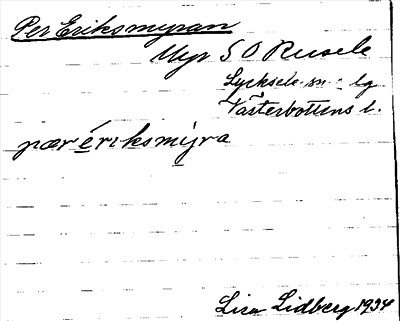 Per Eriksmyran
Myr S O Rusele
Lycksele sn lg
Västerbottens l.
pær ériksmyra
Lisa Lidberg 1934